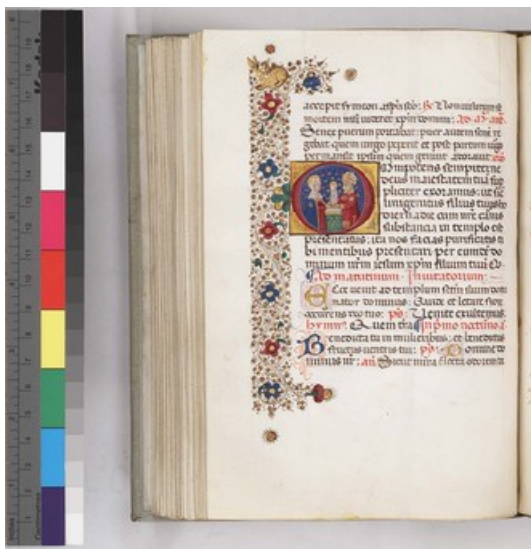 accepit symeon
mortem nisi videret xpm domini:
Senex puerum portabat: puer autem senē re
gebat quem virgo peperit et post partum virgo
permansit ipsum quem genuit adorauit
Omnipotens sempiterne
deus maiestatem tuā sup
pliciter exoramus: ut sic
unigenitus filius tuus
hodierna die cum nre carnis
substantia in templo est
presentatus: ita nos facias purificatis ti
bi mentibus presentari per eundē do
minum nrm iesum xpm filium tuū
Ad matutinum Inuitatorium
Ecce uenit ad templum sctm suum domi
nator dominus: Gaude et letare sion
occurens deo tuo: ps: Uenite exultemus
hymn: Quem tra In primo nocturno a
Benedicta tu in mulieribus: et benedictus
fructus uentris tui: ps: Domine do
minus nr: an Sicut mira electa
Centimetres